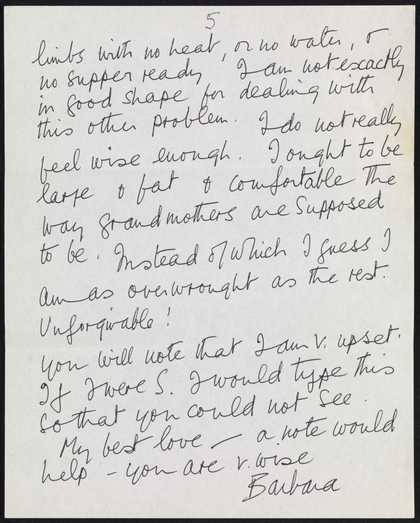 5
limbs with no heat, or no water, &
no supper ready I am not exactly
in good shape for dealing with
this other problem. I do not really
feel wise enough. I ought to be
large & fat & comfortable the
way grandmothers are supposed
to be. Instead of which I guess I
am as overwrought as the rest.
Unforgivable!
You will note that I am v. upset.
If I were S. I would type this
so that you could not see.
My best love – a note would
help – you are v. wise
Barbara